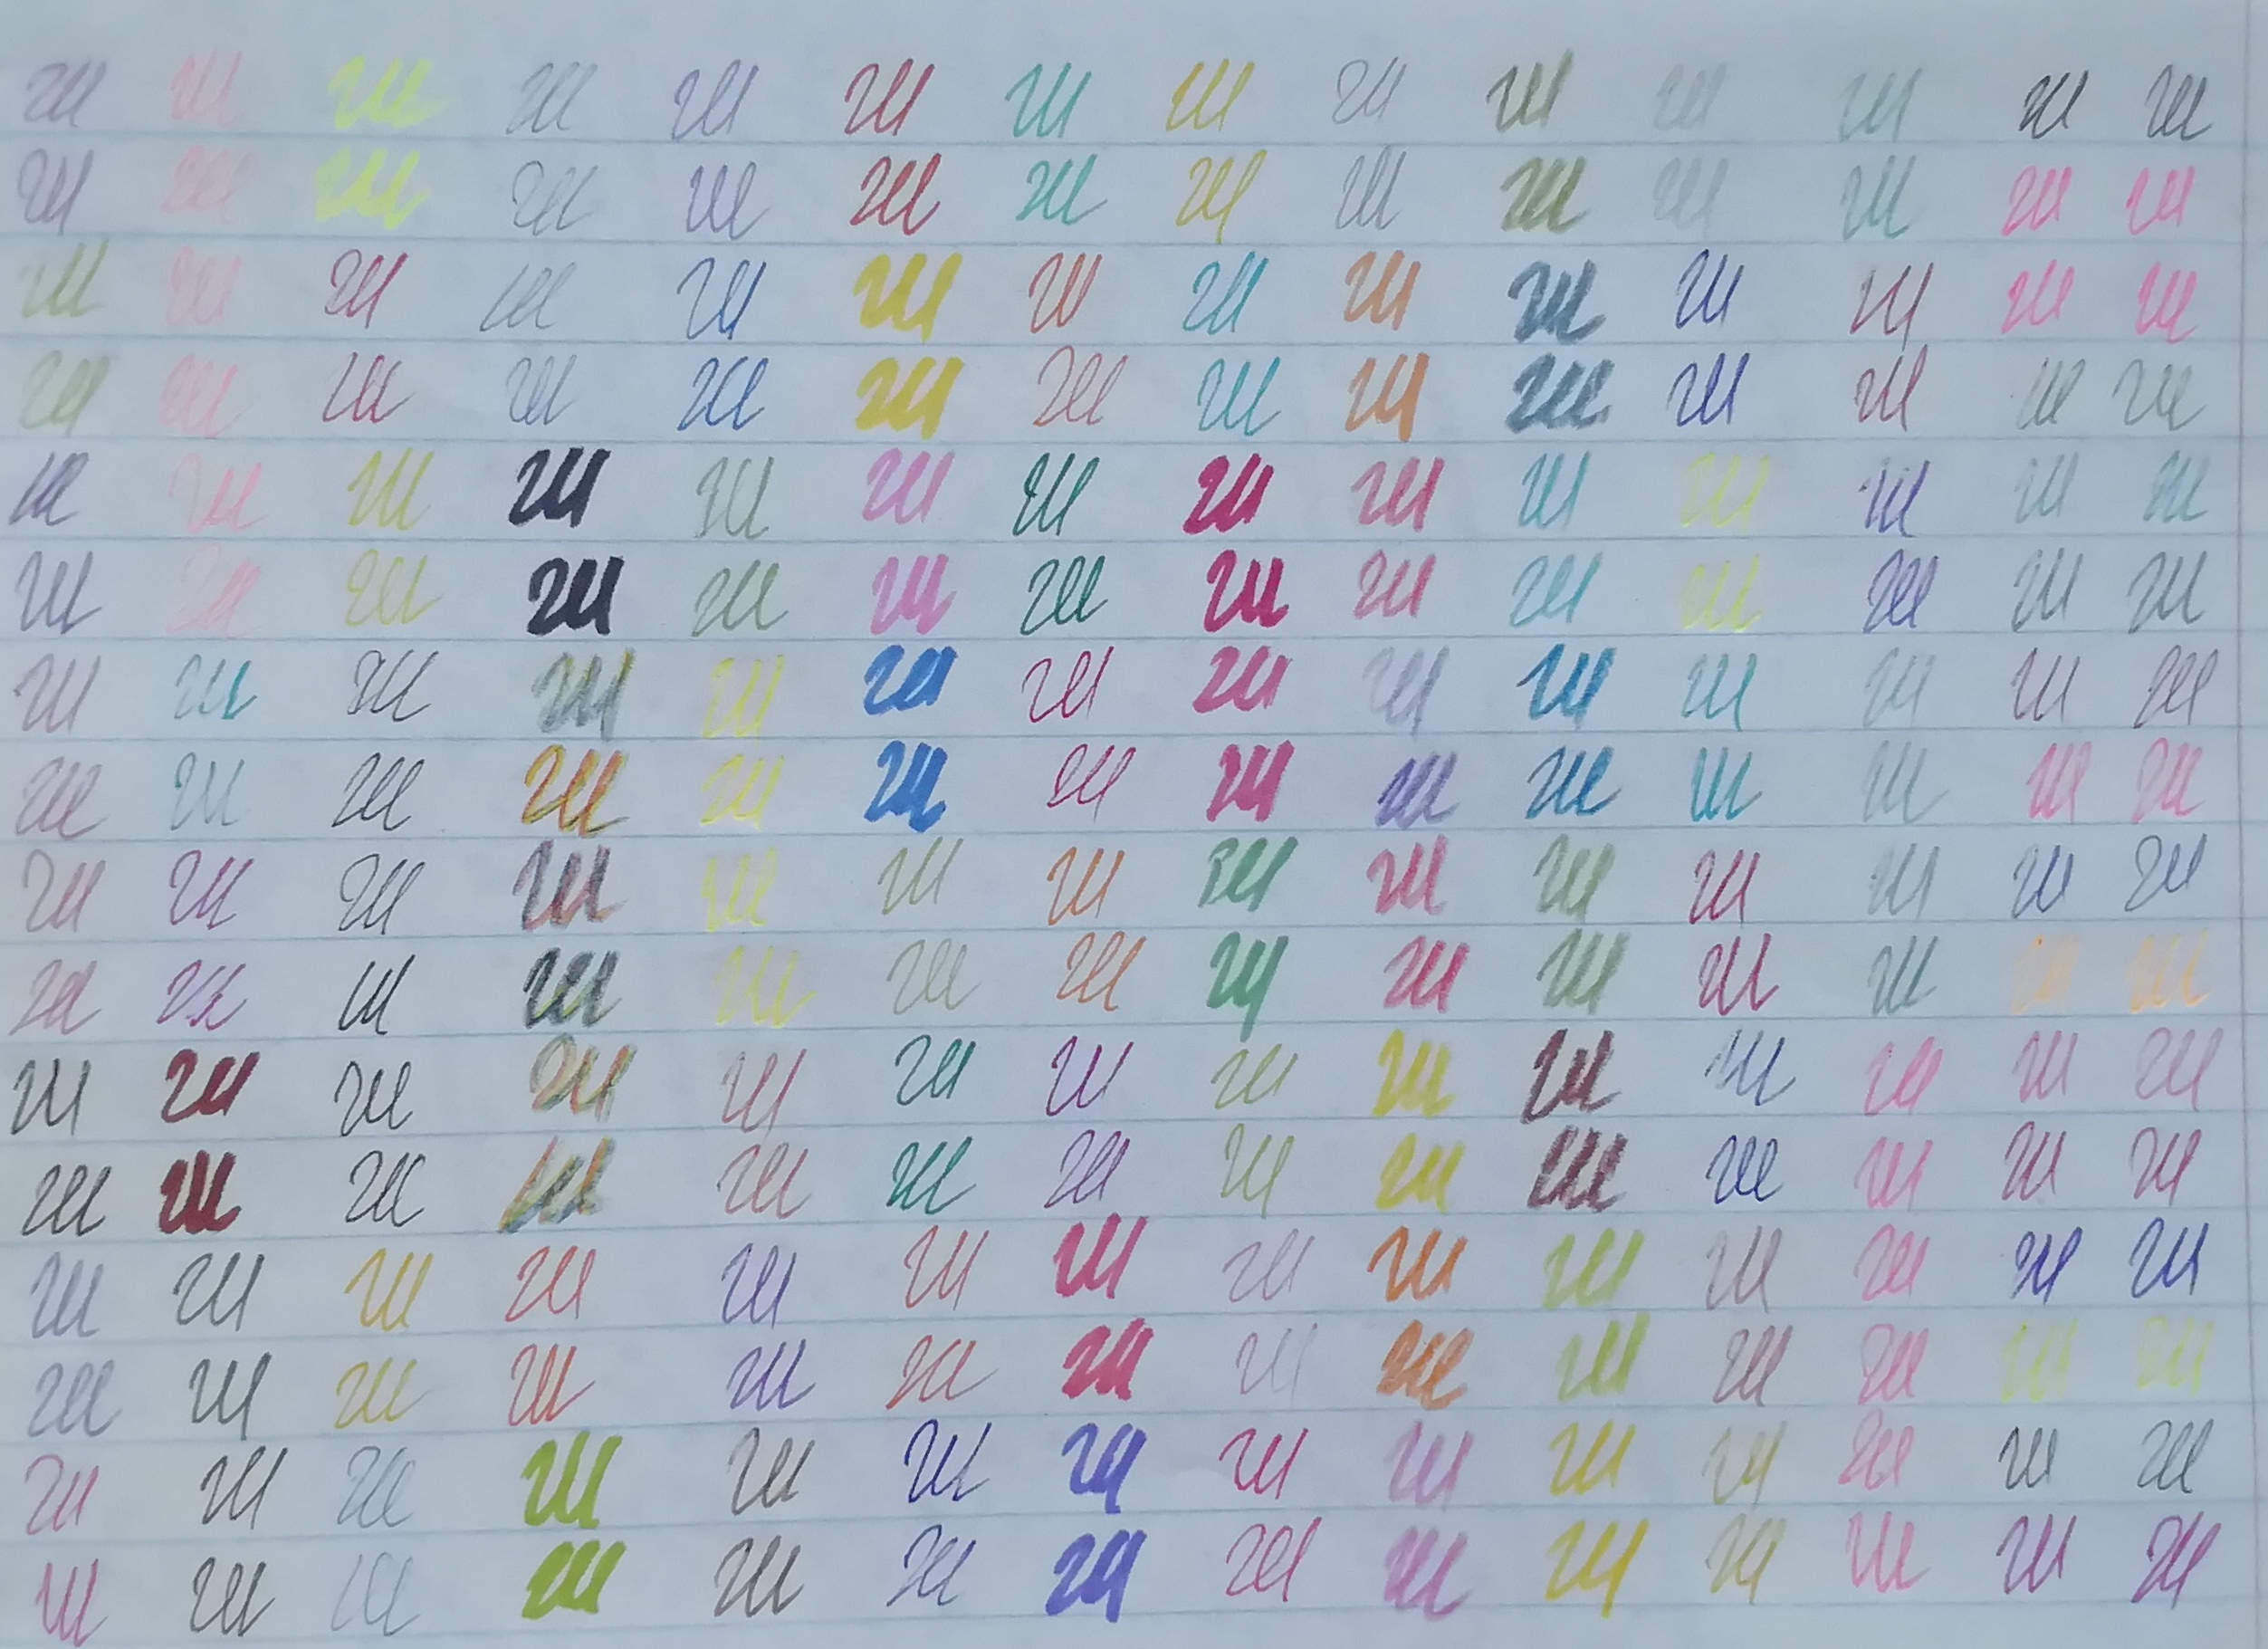 Ш Ш Ш Ш Ш Ш Ш Ш Ш Ш Ш Ш Ш Ш
Ш Ш Ш Ш Ш Ш Ш Ш Ш Ш Ш Ш Ш Ш
Ш Ш Ш Ш Ш Ш Ш Ш Ш Ш Ш Ш Ш Ш
Ш Ш Ш Ш Ш Ш Ш Ш Ш Ш Ш Ш Ш Ш
Ш Ш Ш Ш Ш Ш Ш Ш Ш Ш Ш Ш Ш Ш
Ш Ш Ш Ш Ш Ш Ш Ш Ш Ш Ш Ш Ш Ш
Ш Ш Ш Ш Ш Ш Ш Ш Ш Ш Ш Ш Ш Ш
Ш Ш Ш Ш Ш Ш Ш Ш Ш Ш Ш Ш Ш Ш
Ш Ш Ш Ш Ш Ш Ш Ш Ш Ш Ш Ш Ш Ш
Ш Ш Ш Ш Ш Ш Ш Ш Ш Ш Ш Ш Ш Ш
Ш Ш Ш Ш Ш Ш Ш Ш Ш Ш Ш Ш Ш Ш
Ш Ш Ш Ш Ш Ш Ш Ш Ш Ш Ш Ш Ш Ш
Ш Ш Ш Ш Ш Ш Ш Ш Ш Ш Ш Ш Ш Ш
Ш Ш Ш Ш Ш Ш Ш Ш Ш Ш Ш Ш Ш Ш
Ш Ш Ш Ш Ш Ш Ш Ш Ш Ш Ш Ш Ш Ш
Ш Ш Ш Ш Ш Ш Ш Ш Ш Ш Ш Ш Ш Ш